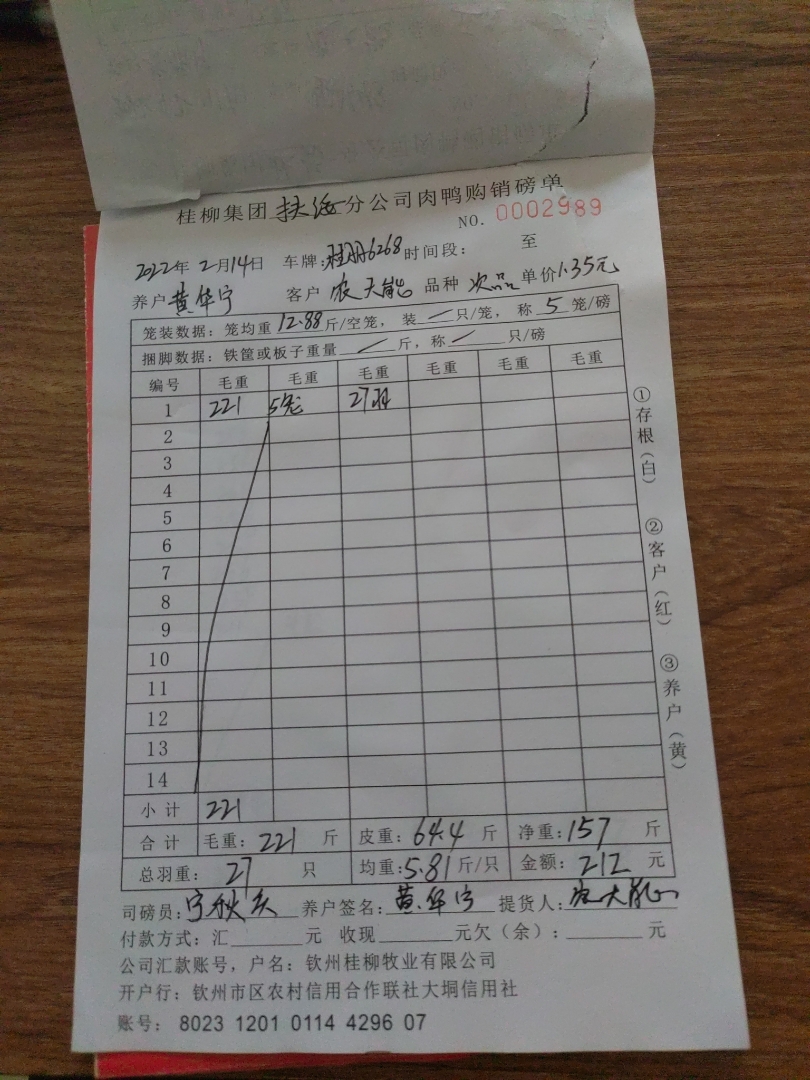 桂柳集团扶绥分公司肉鸭购销磅单
NO. 0002989
2022年2月14日 车牌: 6268 时间段: 至
养户 黄华宁 客户 农天能 品种 次品 单价1.35元
笼装数据: 笼均重 12.88 斤/空笼, 装 / 只/笼, 称 5 笼/磅
捆脚数据: 铁筐或板子重量 / 斤, 称 / 只/磅
编号 毛重 毛重 毛重 毛重 毛重 毛重
1 221 5笼 27羽
2
3
4
5
6
7
8
9
10
11
12
13
14
小计 221
合计 毛重: 221 斤 皮重: 64.4 斤 净重: 157 斤
总羽重: 27 只 均重: 5.81 斤/只 金额: 212 元
司磅员: 宁秋 养户签名: 黄华宁 提货人: 农天能
付款方式: 汇 元 收现 元欠(余): 元
公司汇款账号, 户名: 钦州桂柳牧业有限公司
开户行: 钦州市区农村信用合作联社大垌信用社
账号: 8023 1201 0114 4296 07
①存根(白)
②客户(红)
③养户(黄)